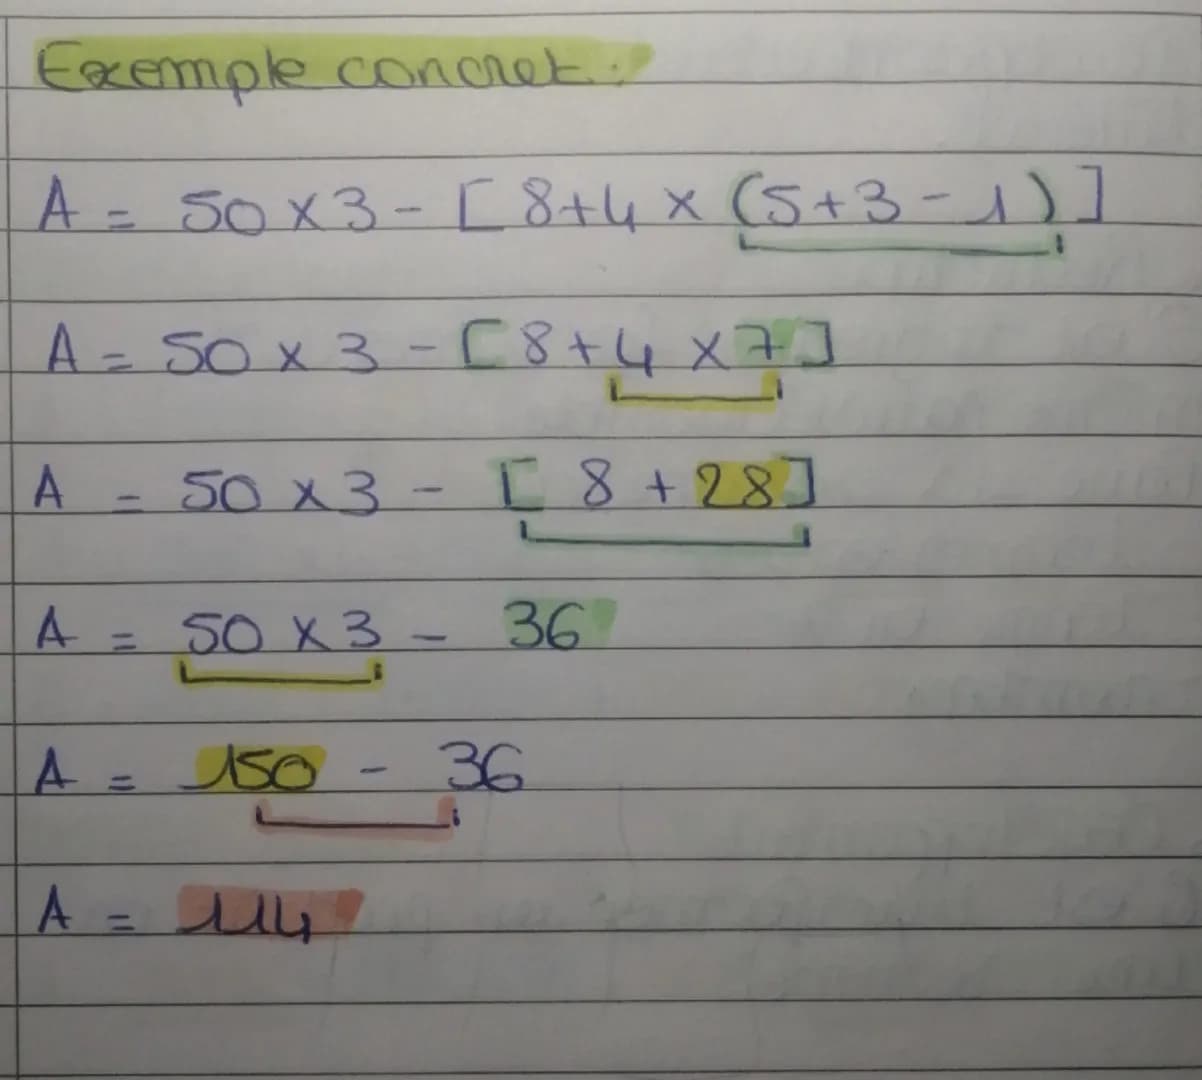 Exemple concret :
A = 50 x 3 - [ 8 + 4 x ( 5 + 3 - 1 ) ]
A = 50 x 3 - [ 8 + 4 x 7 ]
A = 50 x 3 - [ 8 + 28 ]
A = 50 x 3 - 36
A = 150 - 36
A = 114